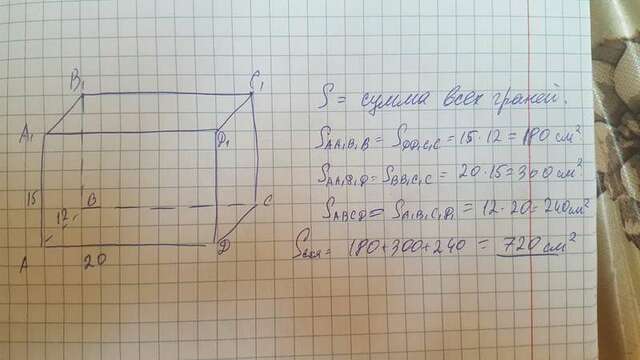 B₁
C₁
A₁
D₁
15
12
B
C
A
20
D
S = сумма всех граней.
S_AA₁B₁B = S_DD₁C₁C = 15·12 = 180 см²
S_AA₁D₁D = S_BB₁C₁C = 20·15 = 300 см²
S_ABCD = S_A₁B₁C₁D₁ = 12·20 = 240 см²
= 180+300+240 = 720 см²